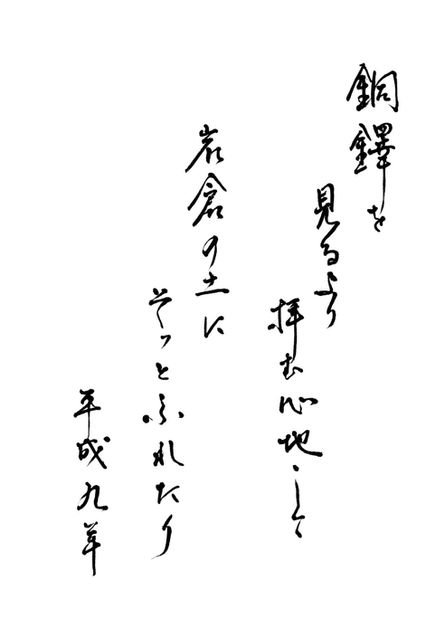 銅鐸を
見るより
拝む心地して
岩倉の土に
そつとふれたり
平成九年